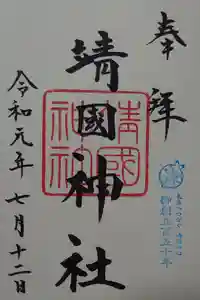 奉拝
靖國神社
靖國
神社
御創立百五十年
令和元年七月十二日